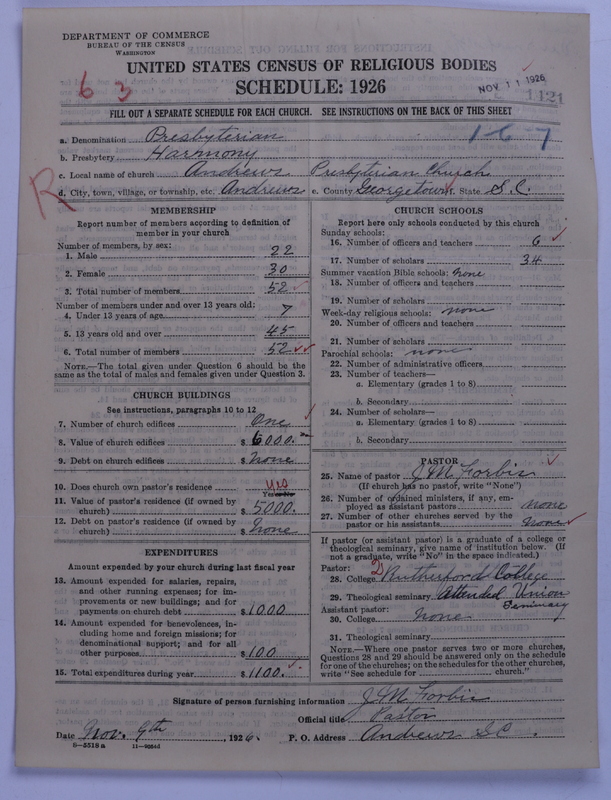 DEPARTMENT OF COMMERCE
BUREAU OF THE CENSUS
WASHINGTON
UNITED STATES CENSUS OF RELIGIOUS BODIES
SCHEDULE: 1926
NOV 11 1926
1121
6 3
FILL OUT A SEPARATE SCHEDULE FOR EACH CHURCH. SEE INSTRUCTIONS ON THE BACK OF THIS SHEET
1-6-7
R
a. Denomination Presbyterian
b. Presbytery Harmony
c. Local name of church Andrews Presbyterian Church
d. City, town, village, or township, etc. Andrews e. County Georgetown f. State S.C.
MEMBERSHIP
Report number of members according to definition of
member in your church
Number of members, by sex:
1. Male 22
2. Female 30
3. Total number of members 52
Number of members under and over 13 years old:
4. Under 13 years of age 7
5. 13 years old and over 45
6. Total number of members 52
NOTE.—The total given under Question 6 should be the
same as the total of males and females given under Question 3.
CHURCH BUILDINGS
See instructions, paragraphs 10 to 12
7. Number of church edifices One
8. Value of church edifices $ 6000.
9. Debt on church edifices $ None
10. Does church own pastor's residence Yes
Yes or No
11. Value of pastor's residence (if owned by
church) $ 5000.
12. Debt on pastor's residence (if owned by
church) $ None
EXPENDITURES
Amount expended by your church during last fiscal year
13. Amount expended for salaries, repairs,
and other running expenses; for im-
provements or new buildings; and for
payments on church debt $ 1000
14. Amount expended for benevolences, in-
cluding home and foreign missions; for
denominational support; and for all
other purposes $ 100
15. Total expenditures during year $ 1100.
CHURCH SCHOOLS
Report here only schools conducted by this church
Sunday schools:
16. Number of officers and teachers 6
17. Number of scholars 34
Summer vacation Bible schools: None
18. Number of officers and teachers
19. Number of scholars
Week-day religious schools: none
20. Number of officers and teachers
21. Number of scholars
Parochial schools: none
22. Number of administrative officers
23. Number of teachers—
a. Elementary (grades 1 to 8)
b. Secondary
24. Number of scholars—
a. Elementary (grades 1 to 8)
b. Secondary
PASTOR
25. Name of pastor J M Forbis
(If church has no pastor, write "None")
26. Number of ordained ministers, if any, em-
ployed as assistant pastors None
27. Number of other churches served by the
pastor or his assistants None
If pastor (or assistant pastor) is a graduate of a college or
theological seminary, give name of institution below. (If
not a graduate, write "No" in the space indicated.)
Pastor:
28. College Rutherford College
29. Theological seminary Attended Union
Seminary
Assistant pastor:
30. College None
31. Theological seminary
NOTE.—Where one pastor serves two or more churches,
Questions 28 and 29 should be answered only on the schedule
for one of the churches; on the schedules for the other churches,
write "See schedule for church."
Signature of person furnishing information J M Forbis
Official title Pastor
Date Nov. 9th, 1926. P. O. Address Andrews S C
8—5518 a